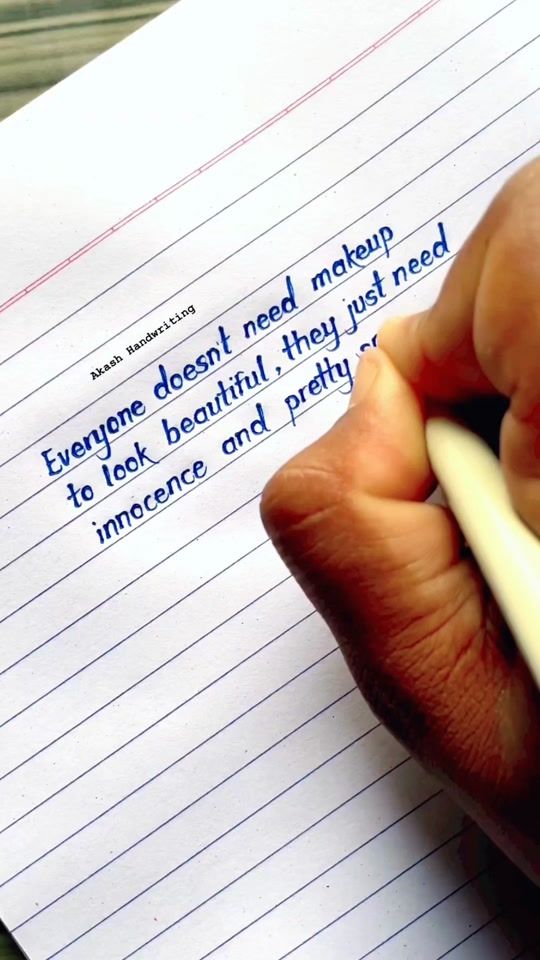 Akash Handwriting
Everyone doesn't need makeup
to look beautiful, they just need
innocence and pretty